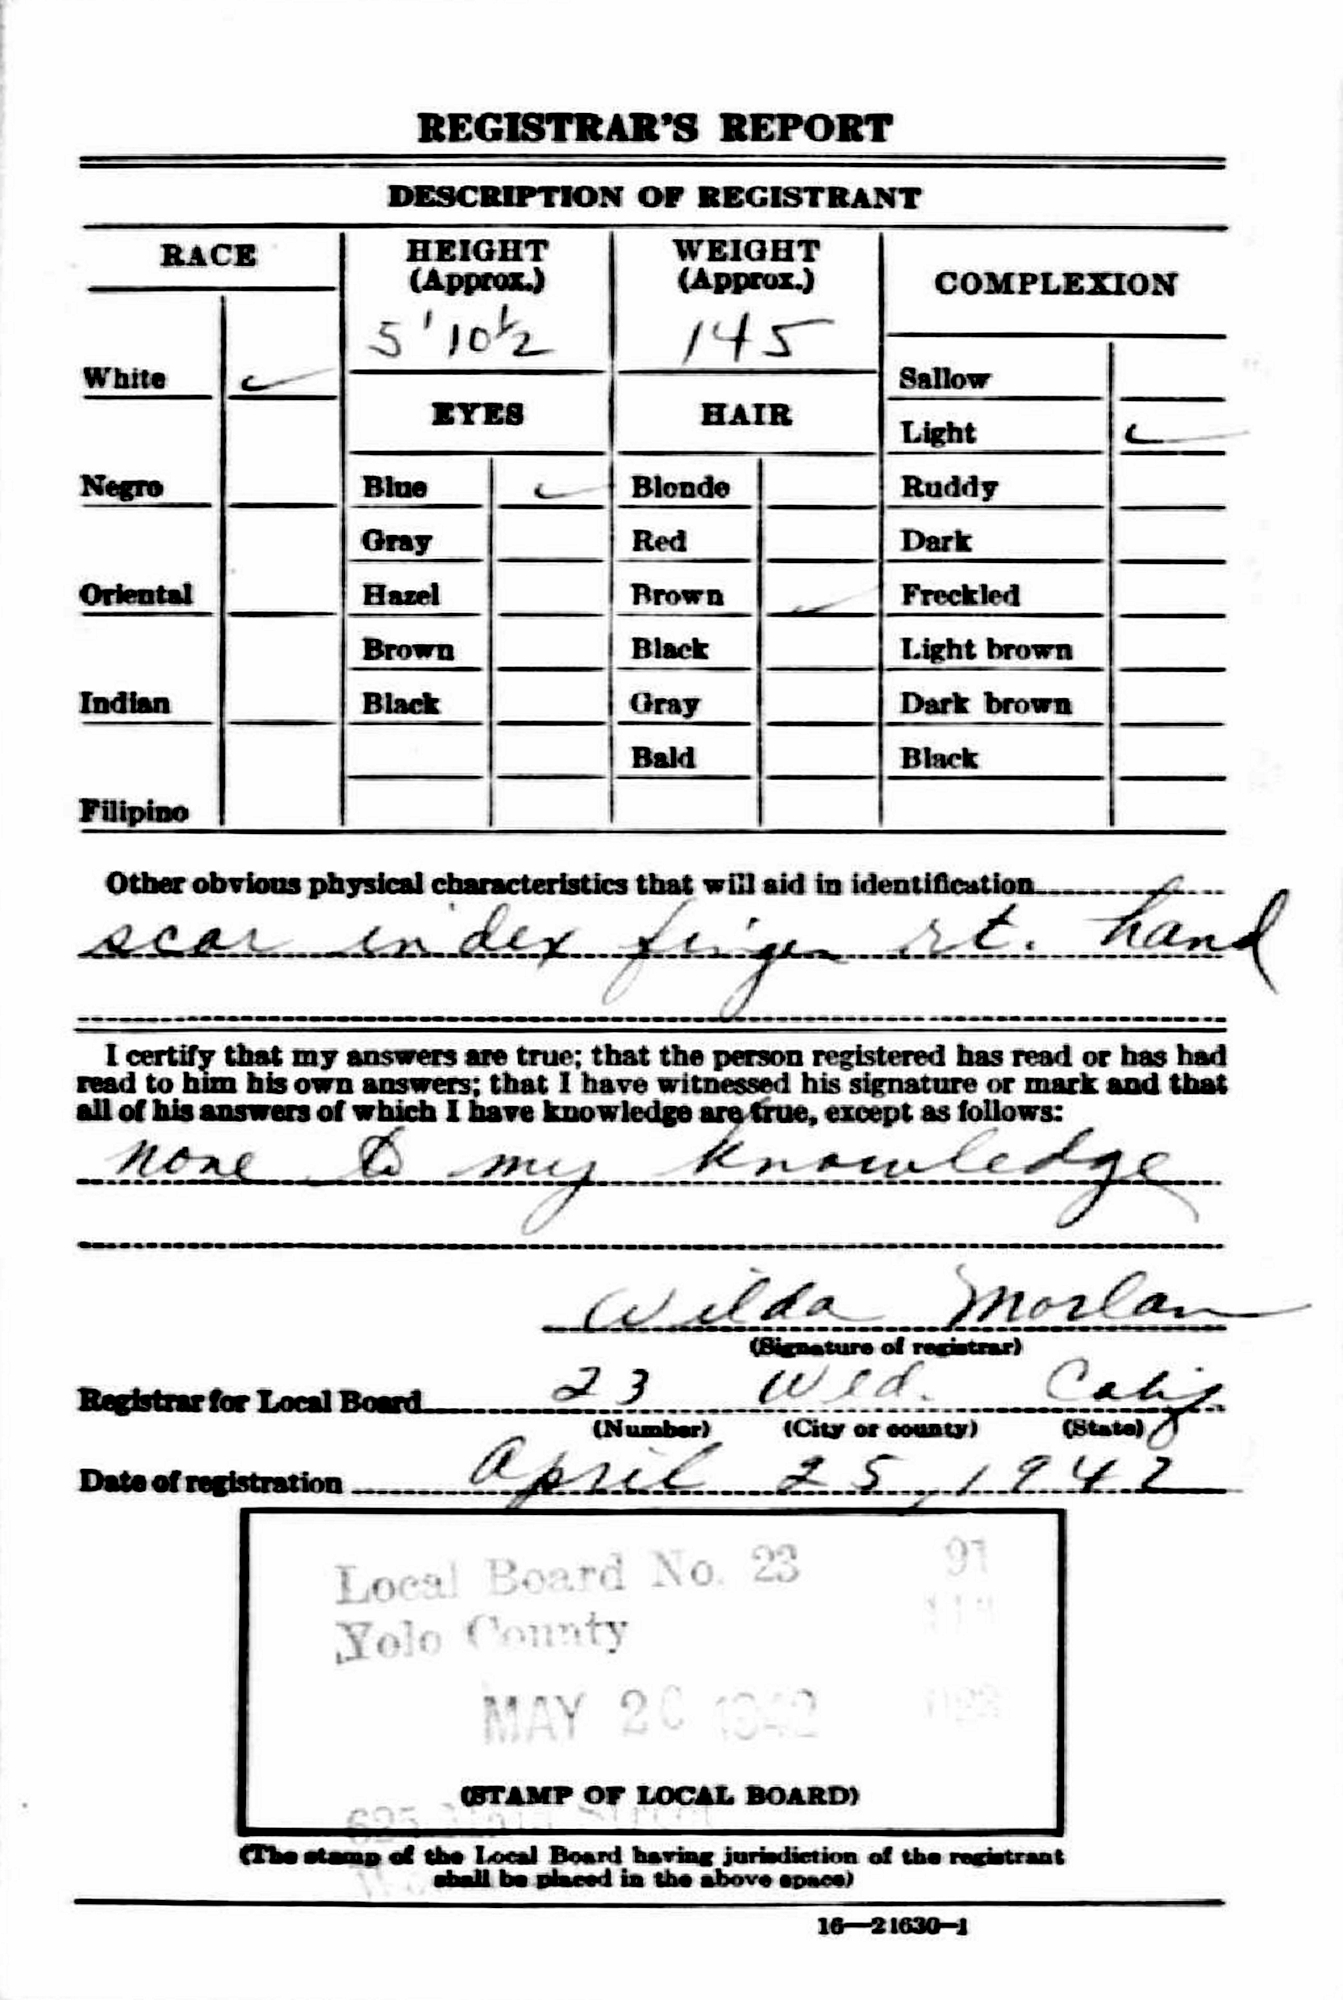 REGISTRAR'S REPORT
DESCRIPTION OF REGISTRANT
RACE
HEIGHT (Approx.)
WEIGHT (Approx.)
COMPLEXION
5' 10 1/2
145
White ✓
Sallow
EYES
HAIR
Light ✓
Negro
Blue ✓
Blonde
Ruddy
Gray
Red
Dark
Oriental
Hazel
Brown ✓
Freckled
Brown
Black
Light brown
Indian
Black
Gray
Dark brown
Bald
Black
Filipino
Other obvious physical characteristics that will aid in identification
scar index finger rt. hand
I certify that my answers are true; that the person registered has read or has had
read to him his own answers; that I have witnessed his signature or mark and that
all of his answers of which I have knowledge are true, except as follows:
none to my knowledge
Wilda Morlan
(Signature of registrar)
Registrar for Local Board 23 Wld. Calif
(Number) (City or county) (State)
Date of registration April 25, 1942
Local Board No. 23 91
Yolo County
MAY 20 1942
(STAMP OF LOCAL BOARD)
625 Main Street
(The stamp of the Local Board having jurisdiction of the registrant
shall be placed in the above space)
16—21630-1